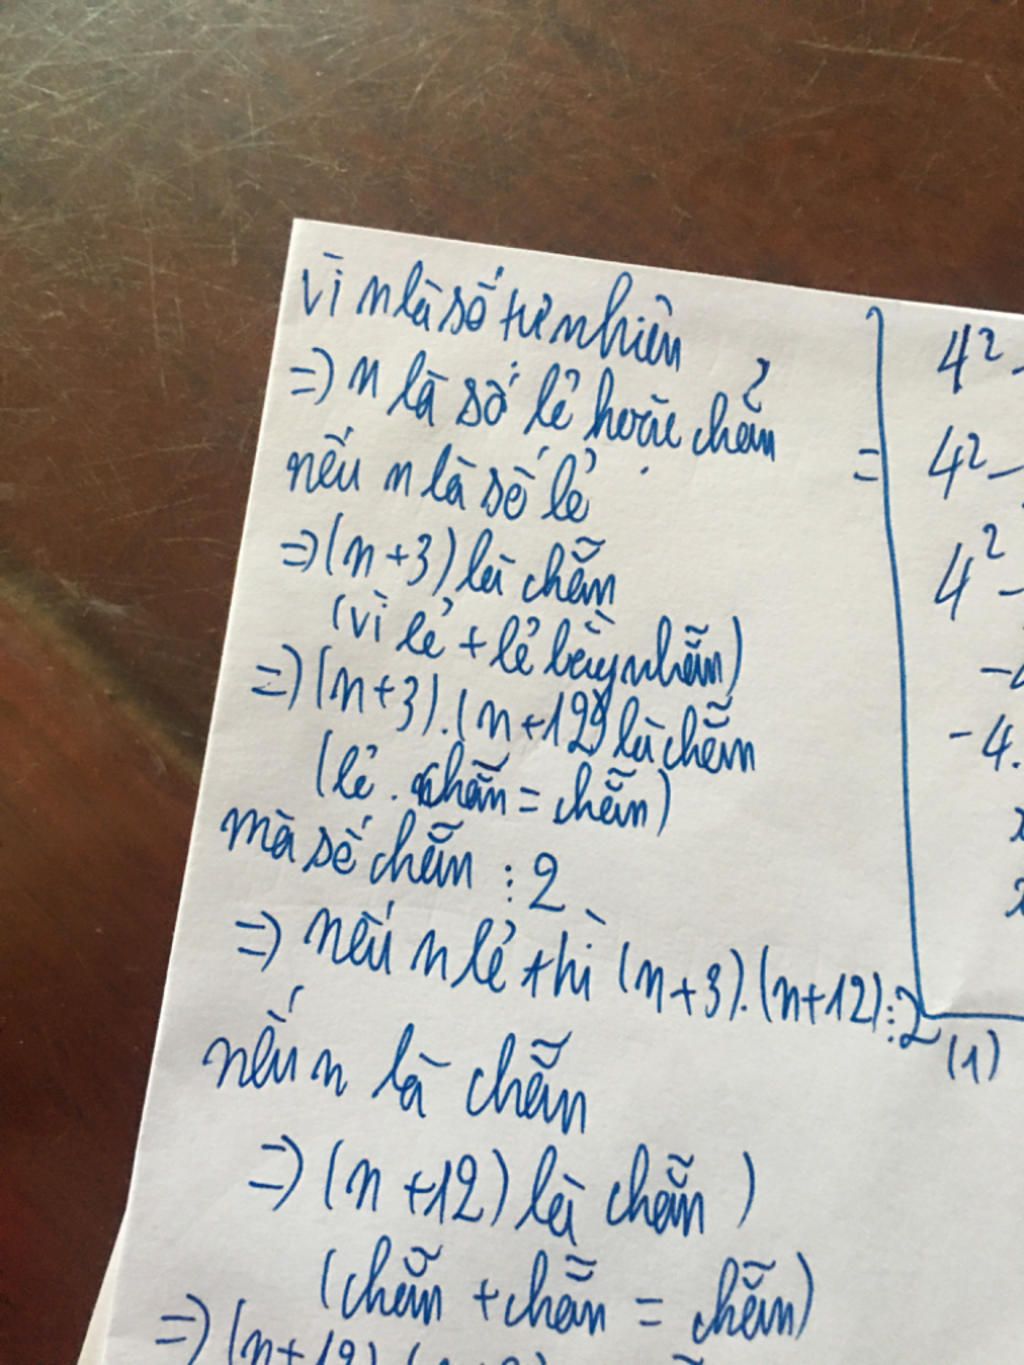 vì n là số tự nhiên
=> n là số lẻ hoặc chẵn
nếu n là số lẻ
=> (n+3) là chẵn
(vì lẻ + lẻ bằng chẵn)
=> (n+3).(n+12) là chẵn
(lẻ . chẵn = chẵn)
mà số chẵn ⋮ 2
=> nếu n lẻ thì (n+3).(n+12) ⋮ 2
(1)
nếu n là chẵn
=> (n+12) là chẵn )
(chẵn + chẵn = chẵn)
=> (n+12)
4² -
= 4² -
4² -
-4.